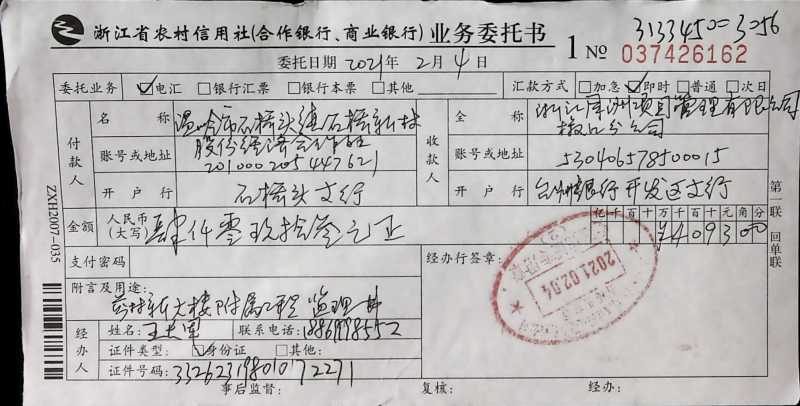 浙江省农村信用社(合作银行、商业银行) 业务委托书
3133450-3056
1 № 037426162
委托日期 2021年 2月 4日
委托业务 ☑电汇 □银行汇票 □银行本票 □其他
汇款方式 □加急 ☑即时 □普通 □次日
付款人
名称 石桥头镇石桥新村
股份经济合作社
账号或地址 201000205447621
开户行 石桥头支行
收款人
全称 浙江 项目管理有限公司
椒江分公司
账号或地址 530406578500015
开户行 台州银行开发区支行
金额 人民币(大写) 肆仟零玖拾叁元正
亿千百十万千百十元角分
¥409300
支付密码
经办行签章:
2021.02.04
附言及用途:
新村新大楼附属工程 监理费
经办人
姓名: 王 军 联系电话:
证件类型: ☑身份证 □其他:
证件号码: 332623198010172271
事后监督: 复核: 经办:
第一联 回单联
ZXH2007-035